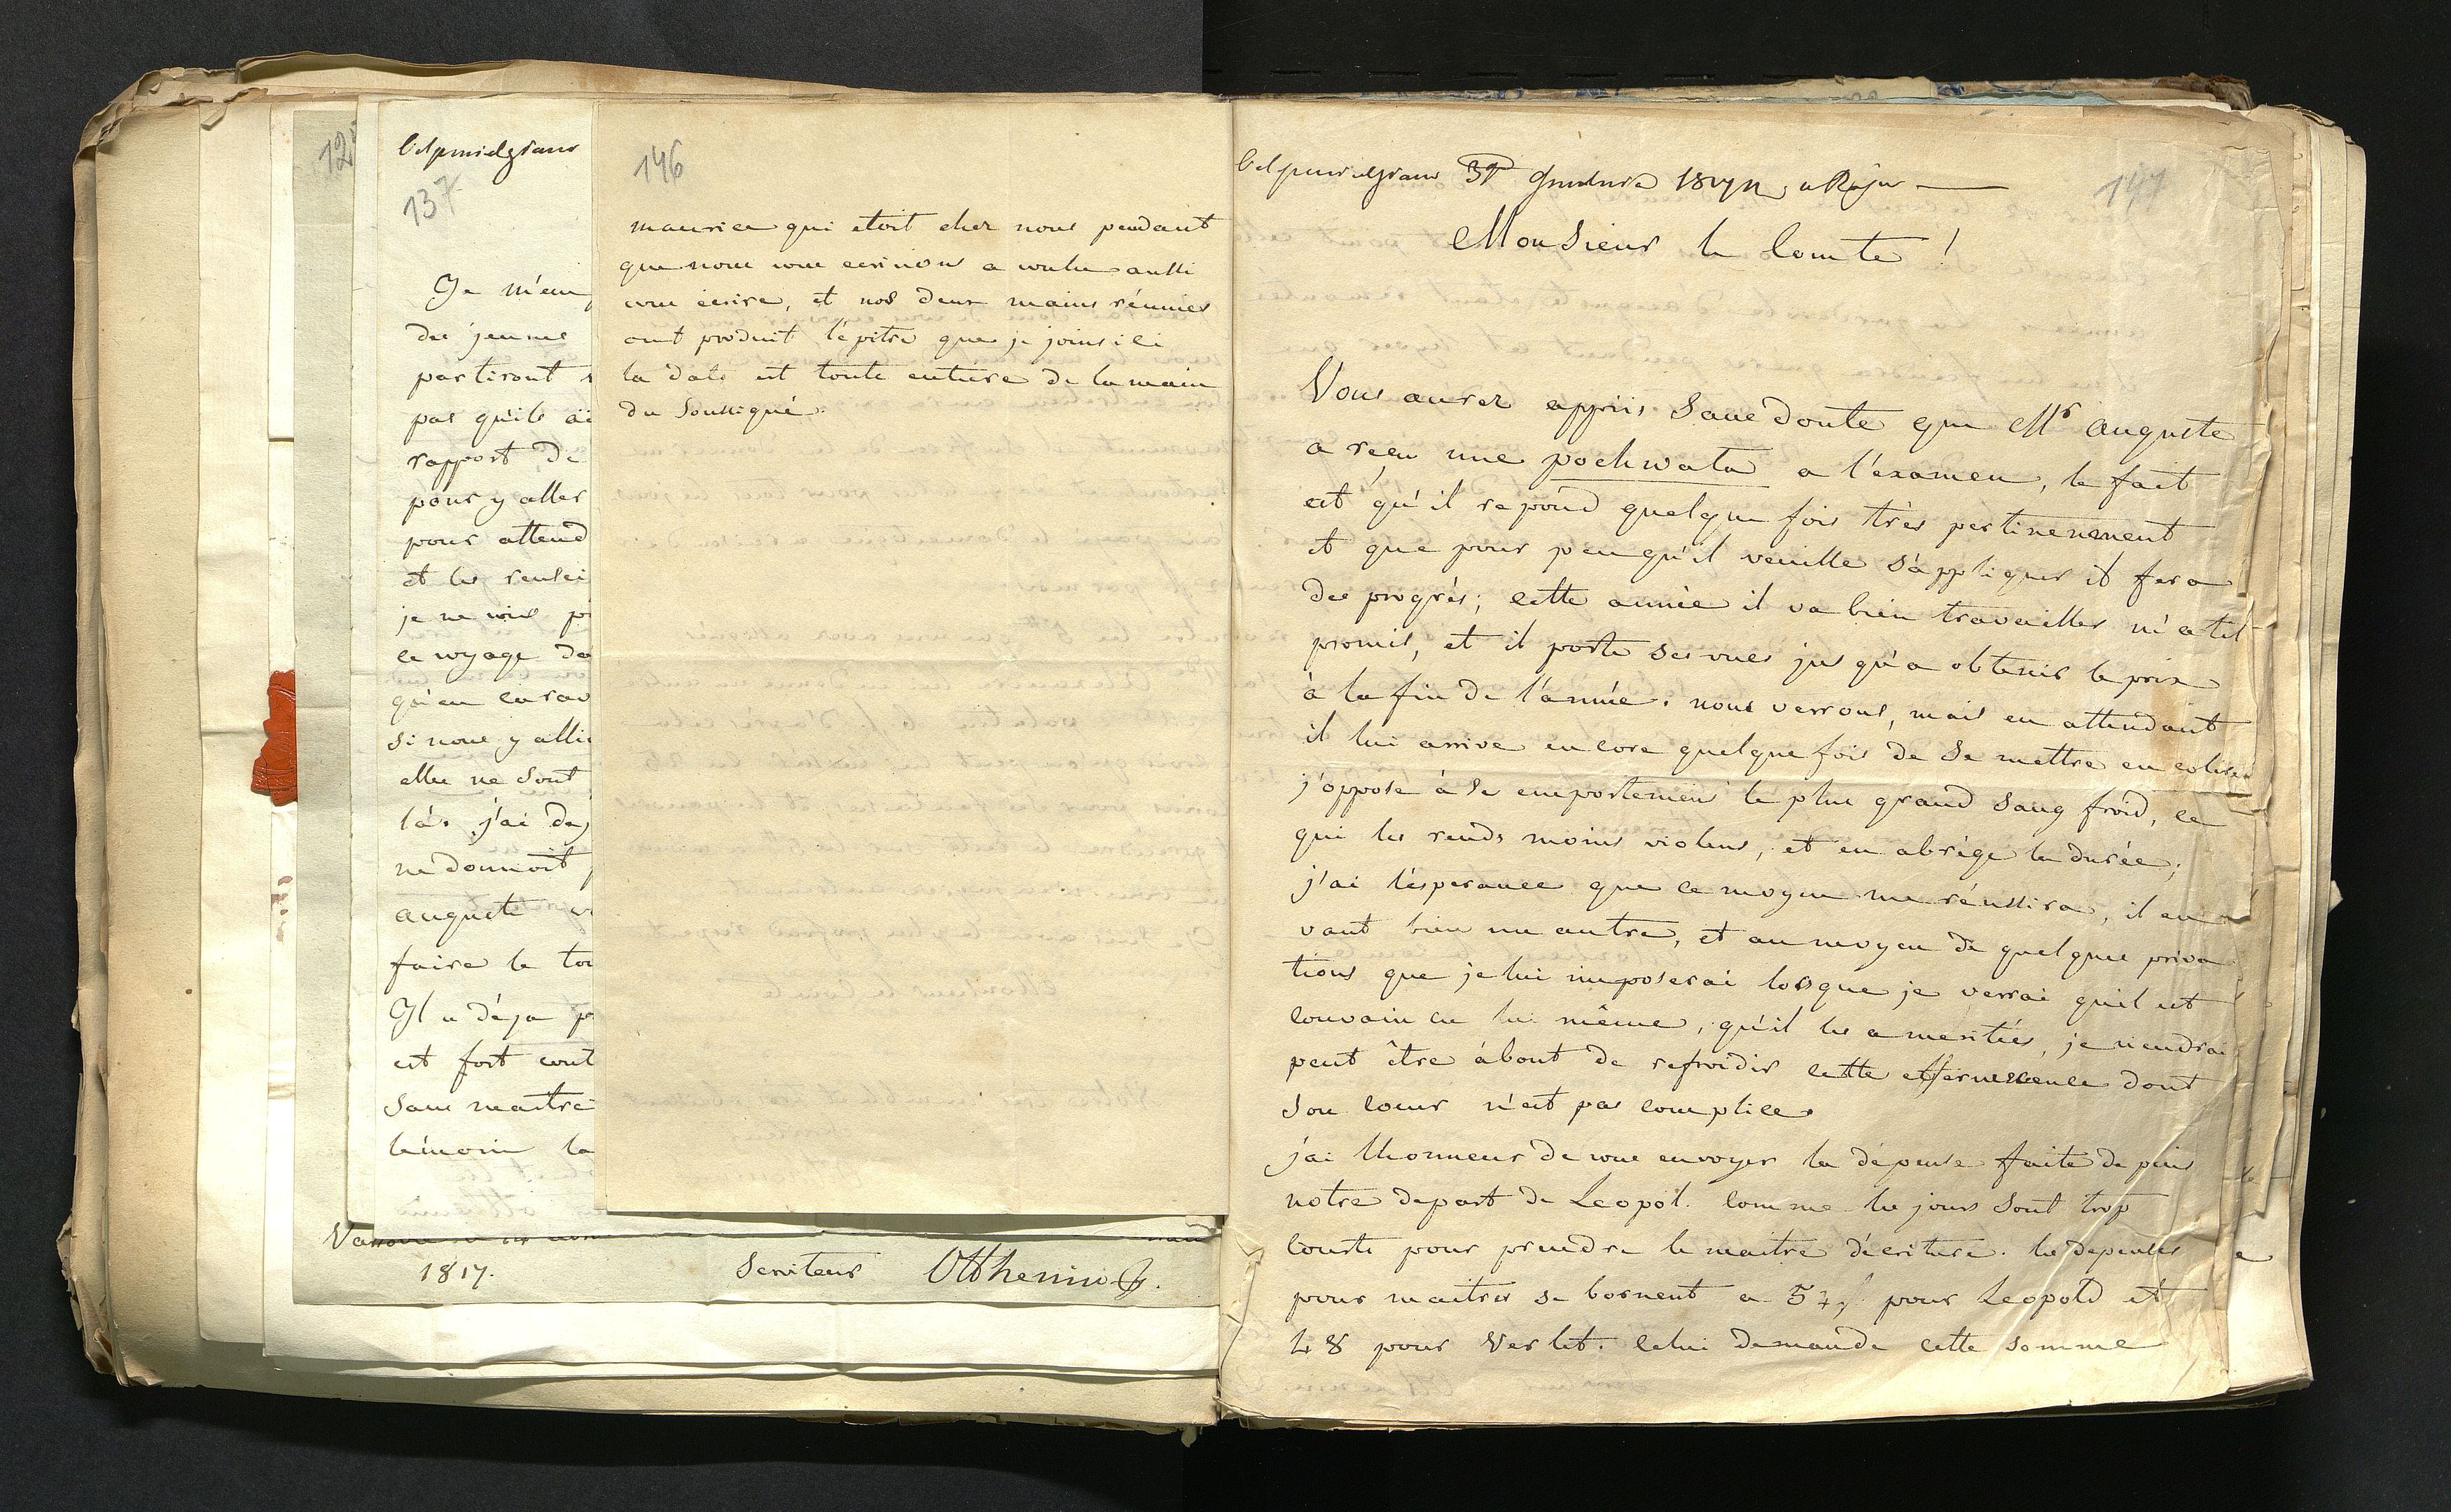 12
Odpowiedziano
137
Je m'em
des jeunes
partiront
pas qu'ils ai
rapport de
pour y aller
pour attend
et les rensei
je ne vois p
le voyage de
qu'en
si nous y alli
elles ne sont
là. j'ai de
ne donnoit
auguste
faire le tou
Il a déja p
est fort cont
sans maitre
témoin la
1817.
Serviteur Otthenin
146
maurice qui etoit chez nous pendant
que nous vous ecrivions a voulu aussi
vous écrire, et nos deux mains réunies
ont produit l'épitre que je joins ici
la date est toute entiere de la main
du Soussigné.
Odpowiedziano 31 Grudnia 1817
147
Monsieur le Comte!
Vous aurez appris Sans doute que Mr auguste
a reçu une pochwata a l'examen, le fait
est qu'il repond quelque fois très pertinemment
et que pour peu qu'il veuille s'appliquer il fera
des progrès; cette année il va bien travailler m'a til
promis, et il porte ses vues jusqu'a obtenir le prix
à la fin de l'année. nous verrons, mais en attendant
il lui arrive encore quelque fois de se mettre en colere
j'oppose à se emportemens le plus grand Sang froid, ce
qui les rends moins violens, et en abrège la durée;
j'ai l'esperance que ce moyen me réussira, il en
vaut bien un autre, et au moyen de quelques priva
tions que je lui imposerai lorsque je verrai quil est
convaincu lui même, qu'il les a meritées, je viendrai
peut être àbout de refroidir cette effervescence dont
Son coeur n'est pas complice.
j'ai lhonneur de vous envoyer la dépense faite depuis
notre depart de Leopol. Comme les jours Sont trop
Courts pour prendre le maitre d'ecriture. les depenses
pour maitres se bornent a 54 f pour Leopold et
48 pour Verlet. Celui demande cette somme